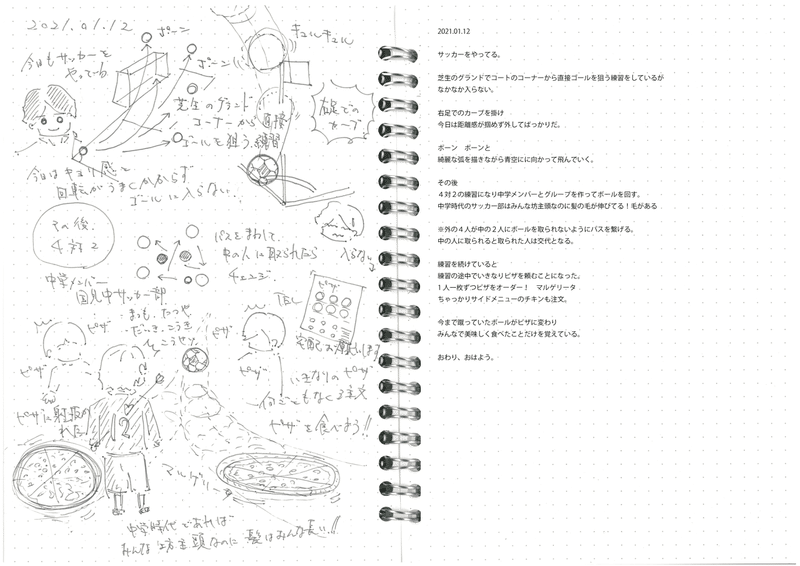 2021.01.12
今日もサッカーを
やっている
ポーン
ポーン
キュルキュル
芝生のグランド
コーナーから直接
ゴールを狙う練習
右足での
カーブ
今日は
回転がうまくかからず
ゴールに入らない
その後
4対2
パスをまわして、
中の人に取られたら
チェンジ
入らない
中学メンバー
国見中サッカー部
TEL
ピザ
ピザ
ピザ
ピザ
ピザ
宅配お願いします
いきなりのピザ
何ごともなく注文
ピザを食べよう!!
ピザに射抜か
れた
12
マルゲリータ
中学時代であれば
みんな坊主頭なのに髪はみんな長い!!
2021.01.12
サッカーをやってる。
芝生のグランドでコートのコーナーから直接ゴールを狙う練習をしているが
なかなか入らない。
右足でのカーブを掛け
今日は距離感が掴めず外してばっかりだ。
ボーン　ボーンと
綺麗な弧を描きながら青空にに向かって飛んでいく。
その後
４対２の練習になり中学メンバーとグループを作ってボールを回す。
中学時代のサッカー部はみんな坊主頭なのに髪の毛が伸びてる！毛がある
※外の４人が中の２人にボールを取られないようにパスを繋げる。
中の人に取られると取られた人は交代となる。
練習を続けていると
練習の途中でいきなりピザを頼むことになった。
１人一枚ずつピザをオーダー！　マルゲリータ
ちゃっかりサイドメニューのチキンも注文。
今まで蹴っていたボールがピザに変わり
みんなで美味しく食べたことだけを覚えている。
おわり、おはよう。